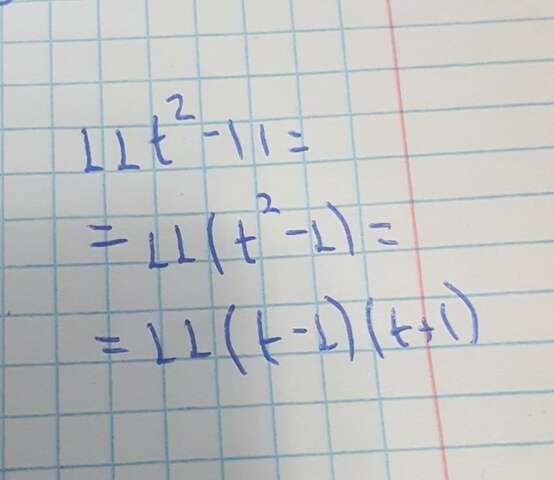 11t² - 11 =
= 11(t² - 1) =
= 11(t - 1)(t + 1)